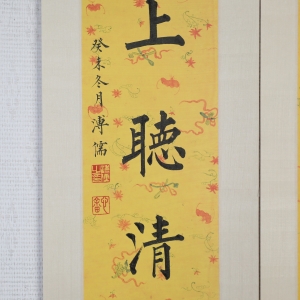 上聽清
癸未冬月溥儒